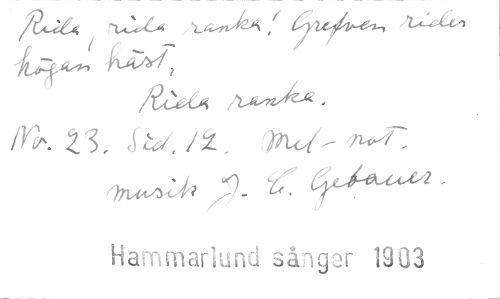 Rida, rida ranka! Grefven rider
högan häst,
Rida ranka.
No. 23. Sid. 12. Mel-not.
musik J. C. Gebauer.
Hammarlund sånger 1903